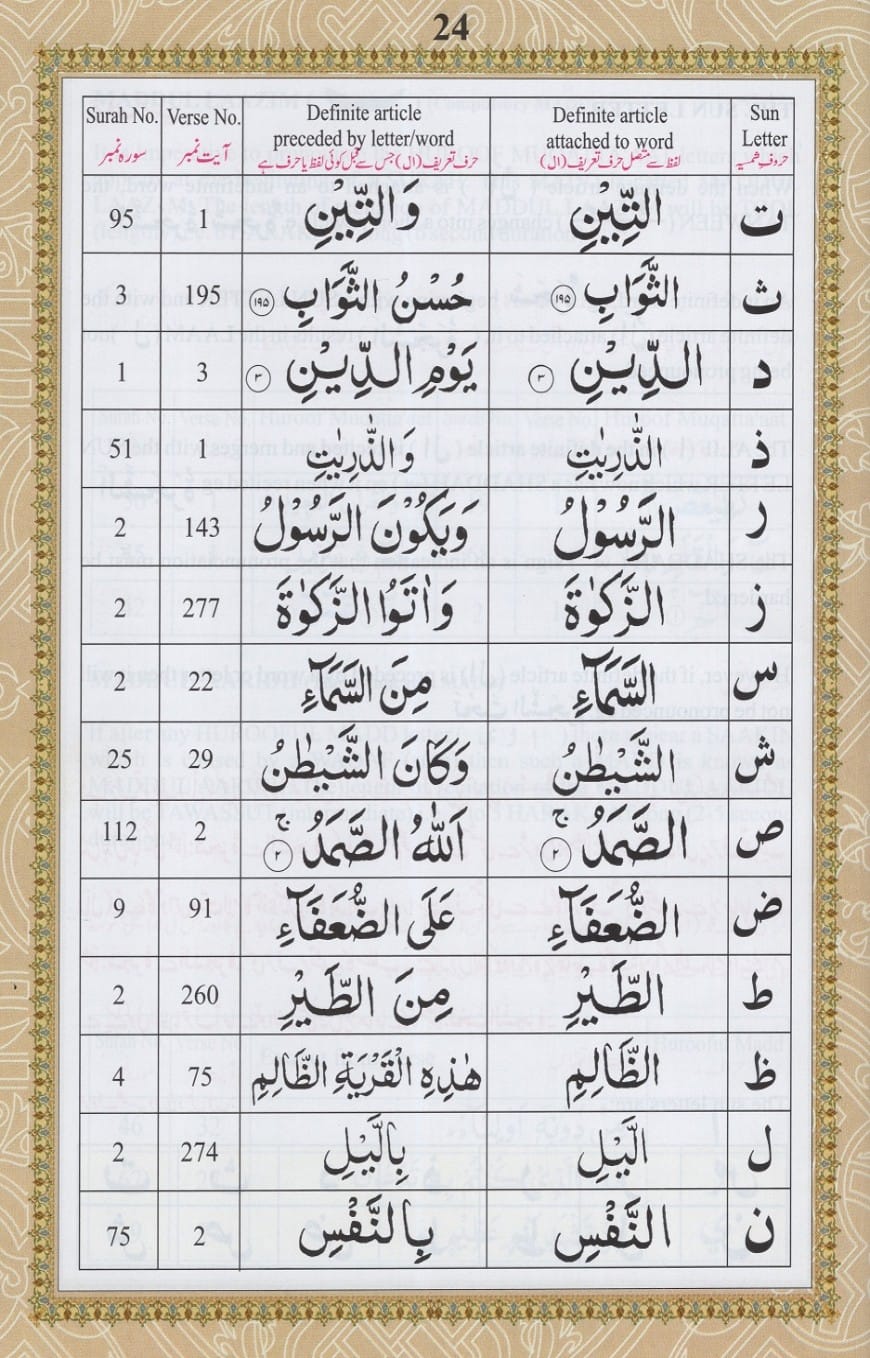 24
Surah No. Verse No. Definite article preceded by letter/word Definite article attached to word Sun Letter
سورہ نمبر آیت نمبر حرف تعریف (ال) جس سے قبل کوئی لفظ یا حرف آئے لفظ سے متصل حرف تعریف (ال) حروف شمسیہ
95 1 وَالتِّيْنِ التِّيْنِ ت
3 195 حُسْنُ الثَّوَابِ ۱۹۵ الثَّوَابِ ۱۹۵ ث
1 3 يَوْمِ الدِّيْنِ ۳ الدِّيْنِ ۳ د
51 1 وَالذّٰرِيٰتِ الذّٰرِيٰتِ ذ
2 143 وَيَكُوْنَ الرَّسُوْلُ الرَّسُوْلُ ر
2 277 وَاٰتَوُا الزَّكٰوةَ الزَّكٰوةَ ز
2 22 مِنَ السَّمَآءِ السَّمَآءِ س
25 29 وَكَانَ الشَّيْطٰنُ الشَّيْطٰنُ ش
112 2 اَللّٰهُ الصَّمَدُ ۚ ۲ الصَّمَدُ ۚ ۲ ص
9 91 عَلَى الضُّعَفَآءِ الضُّعَفَآءِ ص
2 260 مِنَ الطَّيْرِ الطَّيْرِ ط
4 75 هٰذِهِ الْقَرْيَةِ الظَّالِمِ الظَّالِمِ ظ
2 274 بِالَّيْلِ الَّيْلِ ل
75 2 بِالنَّفْسِ النَّفْسِ ن